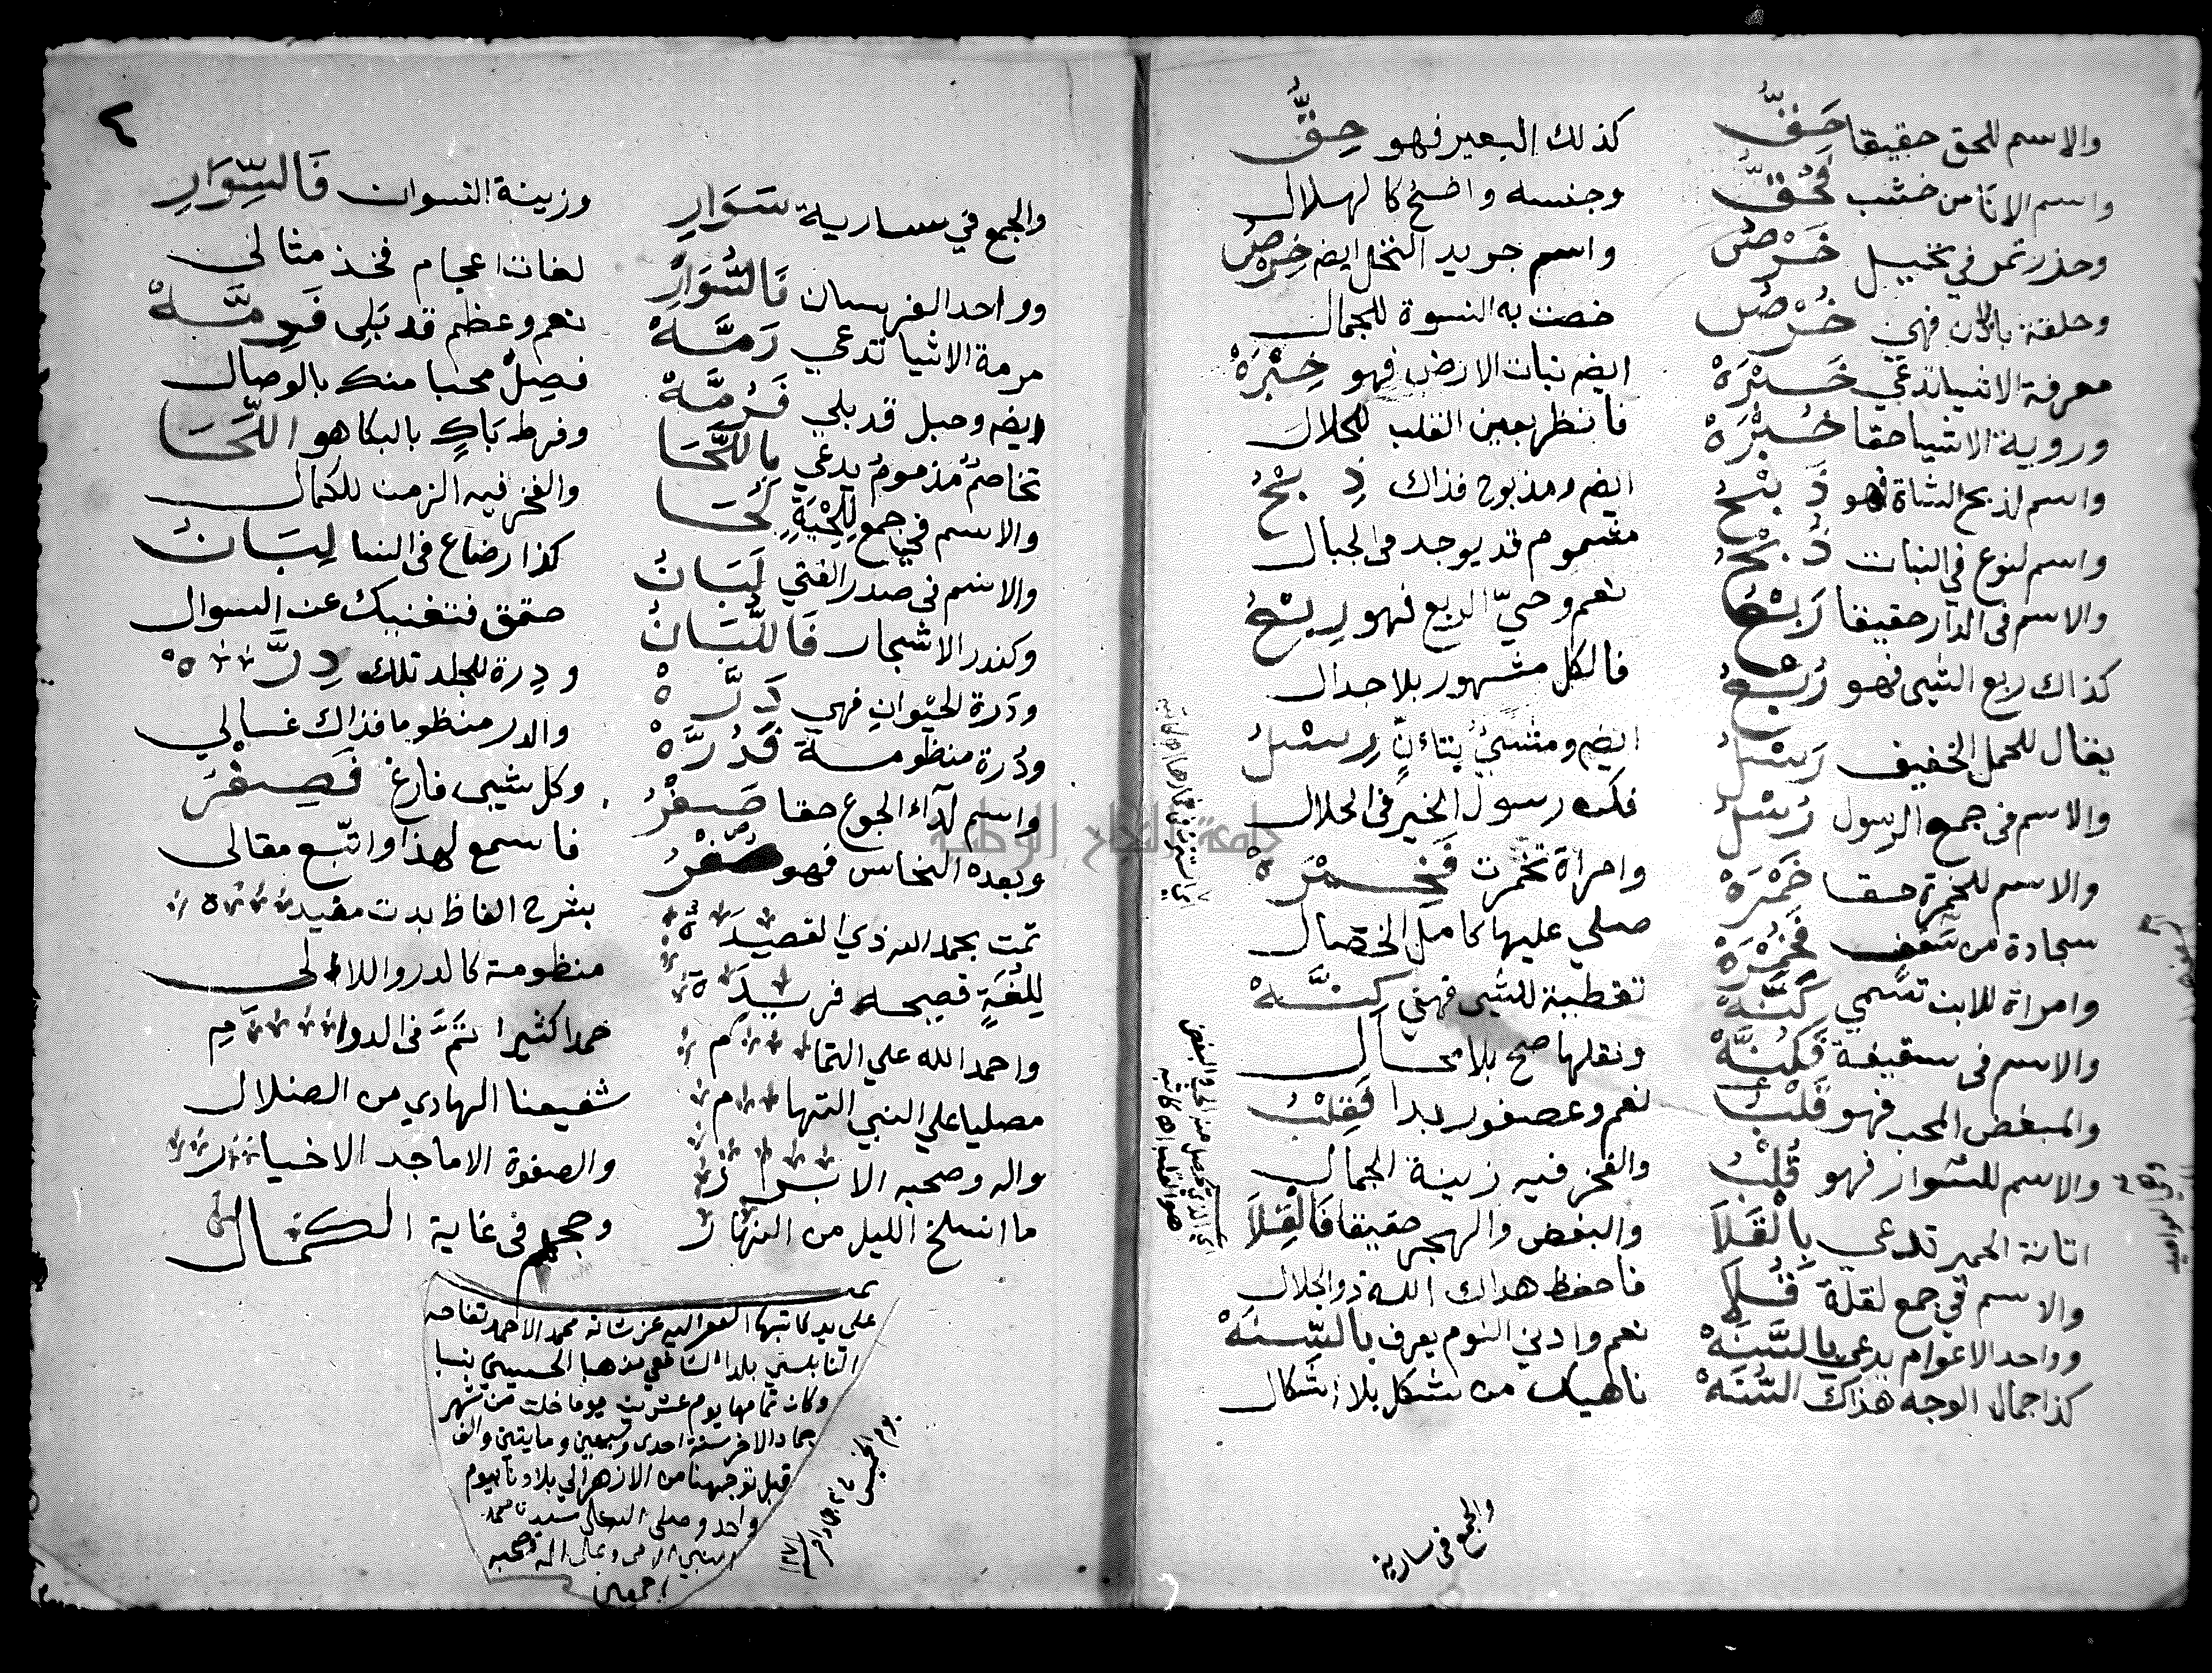 والاسم للحق حقيقا حَقُّ
كذلك البعير فهو حِقُّ
واسم الانا من خشب فَحُقُّ
وجنسه واضح كالهلال
وحذر تمر في نخيل خَرْصُ
واسم جريد النخل ايضه خِرْصُ
وحلقة بالاذن فهي خُرْصُ
خصت به النسوة للجمال
معرفة الاشيا تدعي خَبْرَهْ
ايضه نبات الارض فهو خِبْرَهْ
وروية الاشيا حقا خُبْرَهْ
فانظر بعين القلب للحلال
واسم لذبح الشاة فهو ذَبْحُ
ايضه ومذبوح فذاك ذِبْحُ
واسم لنوع في النبات ذُبْحُ
مشموم قد يوجد في الجبال
والاسم في الدار حقيقا رَبْعُ
نعم وحيّ الربع فهو رِبْعُ
كذاك ربع الشيى فهو رُبْعُ
فالكل مشهور بلا جدال
يقال للحمل الخفيف رَسْلُ
ايضه ومشيُ بتاءنٍ رِسْلُ
والاسم في جمع الرسول رُسْلُ
فكن رسول الخير في الحلال
والاسم للخمرة حقا خَمْرَهْ
وامراة تخمرت فَخِمْرَهْ
سجادة من سَعَف فَخُمْرَهْ
صلي عليها كامل الخصال
وامراة للابن تسمي كَنَّهْ
تغطية للشيى فهي كِنَّهْ
والاسم في سقيفة فَكُنَّهْ
ونقلها صح بلا محال
والمبغض المحب فهو قَلْبُ
نعم وعصفور بدا فَقِلْبُ
والاسم للسوار فهو قُلْبُ
والفخر فيه زينة الجمال
اتانة الحمير تدعي بِالْقَلَا
والبغض والهجر حقيقا فَالْقِلَا
والاسم في جمع لقلة قُلَا
فاحفظ هداك الله ذو الجلال
وواحد الاعوام يدعي بالسَّنَهْ
نعم وادني النوم يعرف بالسِّنَهْ
كذا جمال الوجه هذاك السُّنَهْ
ناهيك من شكل بلا اشكال
والجمع في سارية
٢
والجمع في سارية سَوَارِ
وزينة النسوان فَالسِّوَارِ
وواحد الفرسان فَالسُّوَارِ
لغات اعجام فخذ مثالي
مرمة الاشيا تدعي رَمَّهْ
نعم وعظم قد بَلِي فَرِمَّهْ
ايضه وحبل قد بلي فَرُمَّهْ
فصِلُ محبا منك بالوصال
تخاصمُ مذمومُ يدعي باللَّحَا
وفرط بَاكٍ بالبكا هو اللِّحَا
والاسم في جمع لِلِحْيَةٍ لُحَا
والفخر فيه الزمن للكمال
والاسم في صدر الفتي لَبَانُ
كذا رضاع في النسا لِبَانُ
وكندر الاشجار فَاللُّبَانُ
صمّق فتغنيك عن السوال
ودَرة الحيوانِ فهي دَرَّهْ
ودِرة للجلد تلك دِرَّهْ
ودُرة منظومة فَدُرَّهْ
والدر منظوما فذاك غالي
واسم لدآء الجوع حقا صَفْرُ
وكل شيىء فارغ فَصِفْرُ
وبعده النحاس فهو صُفْرُ
فاسمع لهذا واتّبع مقالى
تمت بحمد الله ذي القصيدَة
بشرح الفاظ بدت مفيدة
لِلُغَةٍ فصيحه فريدَة
منظومة كالدر واللالى
واحمد الله علي التمام
حمدا كثيرا تَمَّ في الدوام
مصليا علي النبي التهامِ
شفيعنا الهادي من الضلال
واله وصحبه الابرار
والصفوة الاماجد الاخيار
ما انسلخ الليل من النهار
وحجهم في غاية الكمال
تمت
علي يد كاتبها الفقير اليه عز شانه محمد الاحمد تفاحه
النابلسي بلدا الشافعي مذهبا الحسيني نسبا
وكان تمامها يوم عشرين يوما خلت من شهر
جماد الاخر سنة احدى وسبعين ومايتين والف
قبل توجهنا من الازهر الي بلادنا بيوم
واحد وصلى الله علي سيدنا محمد
النبي الامي وعلى اله وصحبه
اجمعين
جامعة النجاح الوطنية